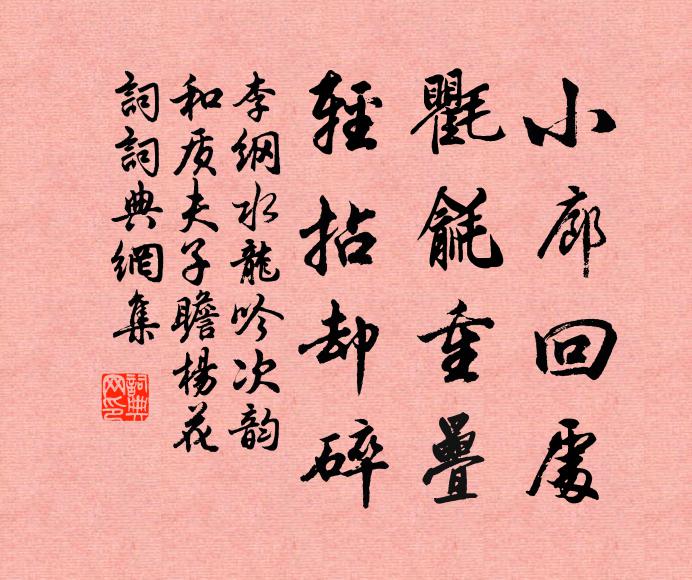 小廊回處
氍毹重疊
輕拈却碎
李纲水龍吟次韵
和质夫子瞻楊花
詞詞典網集
詞典网印